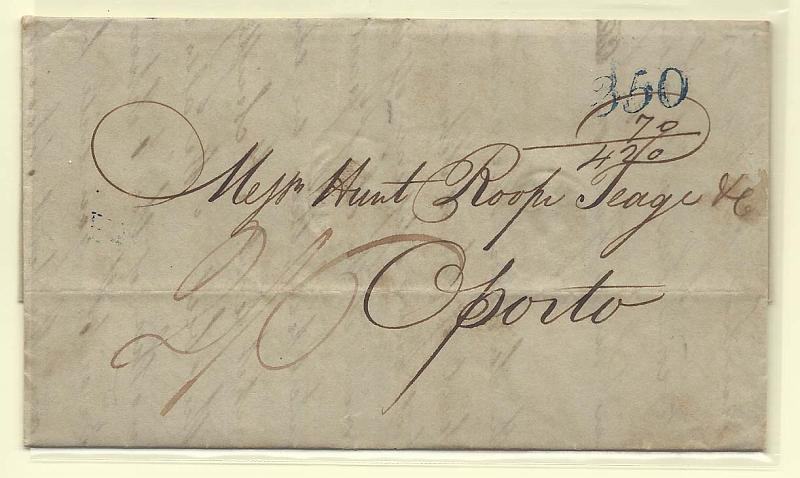 350
70
420
Messrs Hunt Roope Teage & C
Oporto
2/6